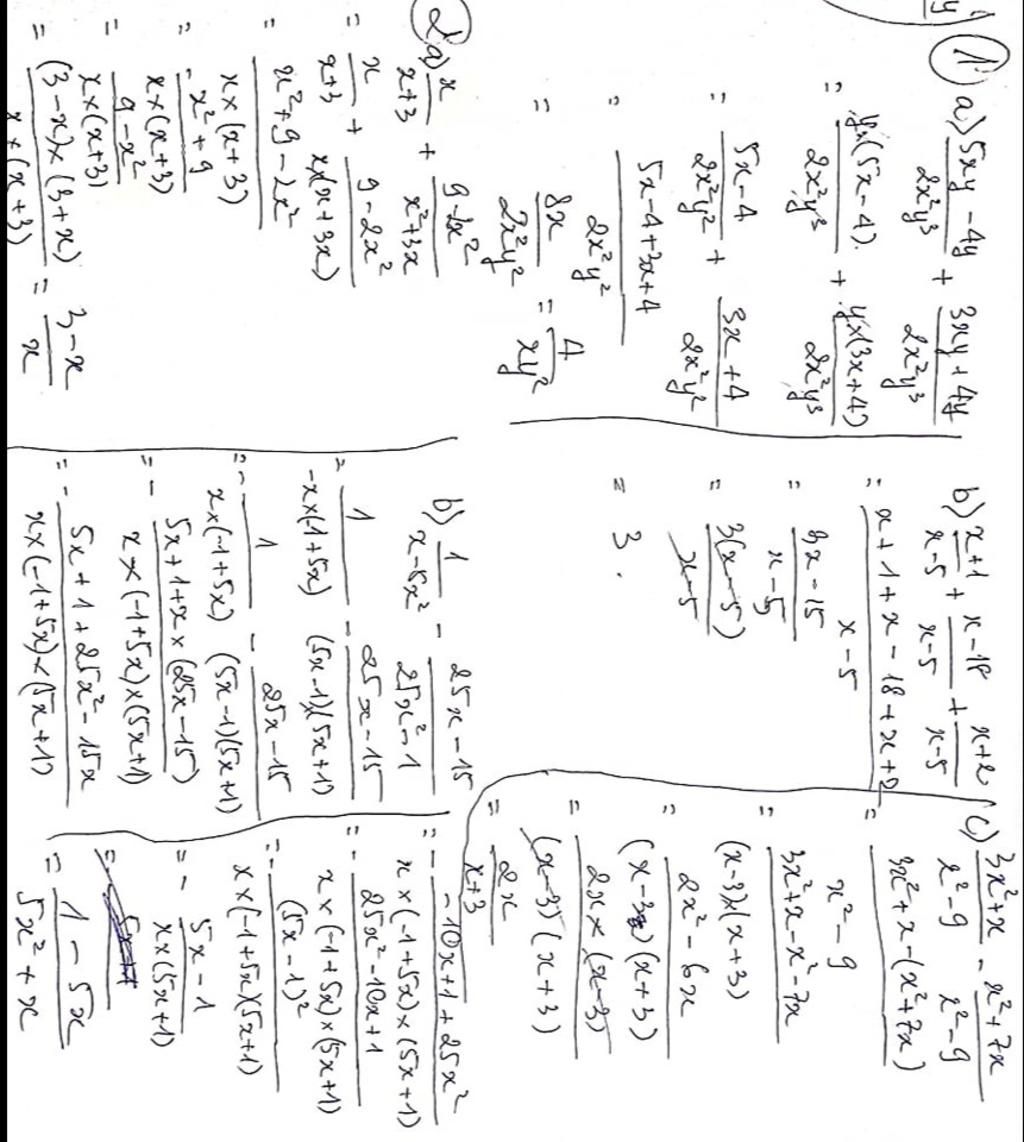 ① a) (5xy - 4y)/(2x²y³) + (3xy + 4y)/(2x²y³)
= (y×(5x - 4))/(2x²y³) + (y×(3x + 4))/(2x²y³)
= (5x - 4)/(2x²y²) + (3x + 4)/(2x²y²)
= (5x - 4 + 3x + 4)/(2x²y²)
= 8x/(2x²y²) = 4/(xy²)
b) (x+1)/(x-5) + (x-18)/(x-5) + (x+2)/(x-5)
= (x + 1 + x - 18 + x + 2)/(x-5)
= (3x - 15)/(x-5)
= (3(x-5))/(x-5)
= 3.
c) (3x²+x)/(x²-9) - (x²+7x)/(x²-9)
= (3x²+x-(x²+7x))/(x²-9)
= (3x²+x-x²-7x)/((x-3)×(x+3))
= (2x²-6x)/((x-3)(x+3))
= (2x×(x-3))/((x-3)(x+3))
= 2x/(x+3)
② a) x/(x+3) + (9-2x²)/(x²+3x)
= x/(x+3) + (9-2x²)/(x×(x+3x))
= (x²+9-2x²)/(x×(x+3))
= (-x²+9)/(x×(x+3))
= (9-x²)/(x×(x+3))
= ((3-x)×(3+x))/(x×(x+3)) = (3-x)/x
b) 1/(x-5x²) - (25x-15)/(25x²-1)
= 1/(-x×(-1+5x)) - (25x-15)/((5x-1)×(5x+1))
= - 1/(x×(-1+5x)) - (25x-15)/((5x-1)(5x+1))
= - (5x+1+x×(25x-15))/(x×(-1+5x)×(5x+1))
= - (5x+1+25x²-15x)/(x×(-1+5x)×(5x+1))
= - (-10x+1+25x²)/(x×(-1+5x)×(5x+1))
= - (25x²-10x+1)/(x×(-1+5x)×(5x+1))
= - (5x-1)²/(x×(-1+5x)(5x+1))
= - (5x-1)/(x×(5x+1))
= (1-5x)/(5x²+x)